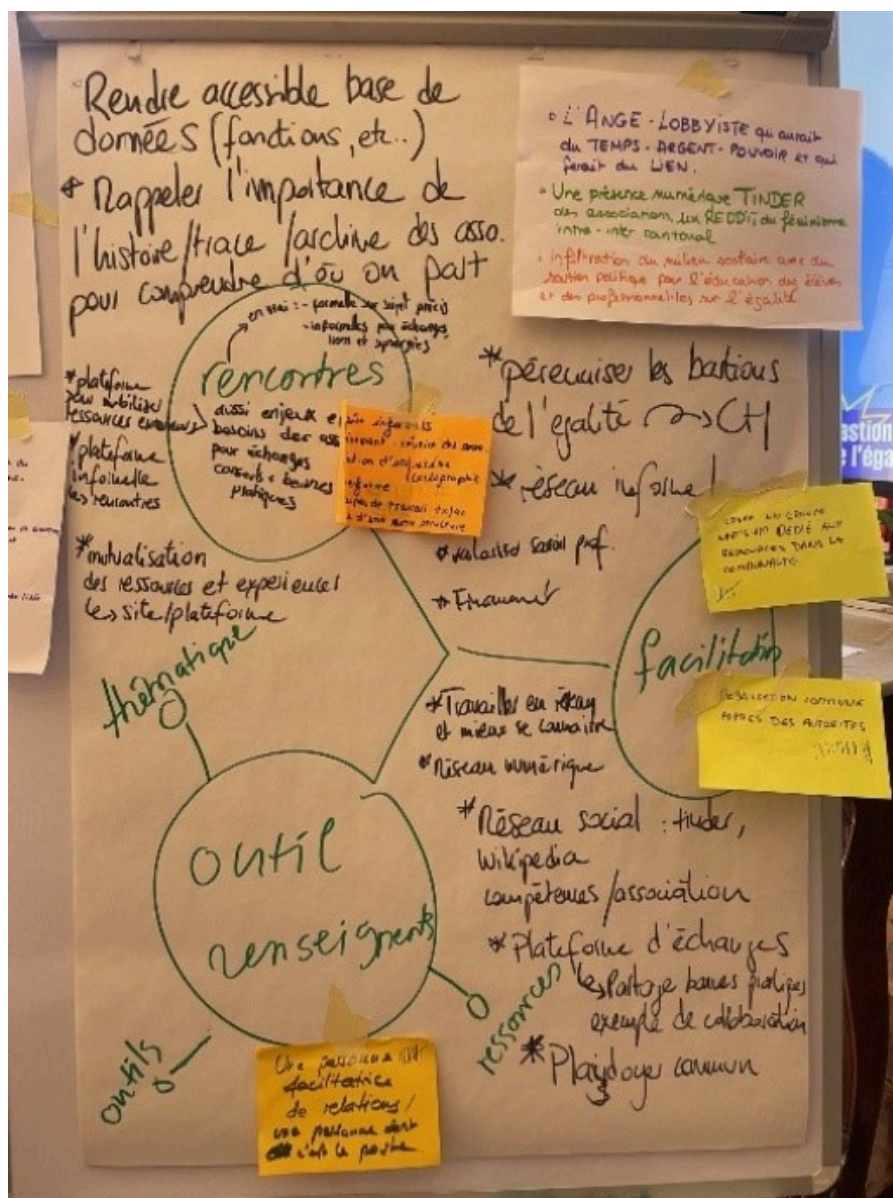 Rendre accessible base de
données (fonctions, etc..)
* Rappeler l'importance de
l'histoire/trace/archive des asso.
pour comprendre d'où on part
° L'ANGE-LOBBYISTE qui aurait
du TEMPS-ARGENT-POUVOIR et qui
ferait du LIEN.
° Une présence numérique TINDER
des associations, un REDDIT du féminisme
intra-inter cantonal
° infiltration du milieu scolaire avec du
soutien politique pour l'éducation des élèves
et des professionnel·les sur l'égalité
- formelle sur sujet précis
- informelles pour échanges,
liens et synergies
rencontres
aussi enjeux
besoins des
pour échanges
conseils + bonnes
pratiques
* plateforme
pour mobiliser
ressources
* plateforme
informelle
rencontres
* mutualisation
des ressources et expériences
site/plateforme
cartographie
* pérenniser les bastions
de l'égalité CH
* réseau informel
* valoriser savoir prof.
* Financement
CRÉER UN GROUPE
WHATSAPP DÉDIÉ AUX
RESSOURCES DANS LA
COMMUNAUTÉ
facilitation
COMMUNE
AUPRÈS DES AUTORITÉS
* Travailler en réseau
et mieux se connaître
* Réseau numérique
* Réseau social : tinder,
wikipedia
compétences/association
* Plateforme d'échanges
Partage bonnes pratiques
exemple de collaboration
* Plaidoyer commun
thématique
outil
renseignements
ressources
outils
Une personne
facilitatrice
de relations!
une personne dont
c'est le poste
bastion
de l'éga